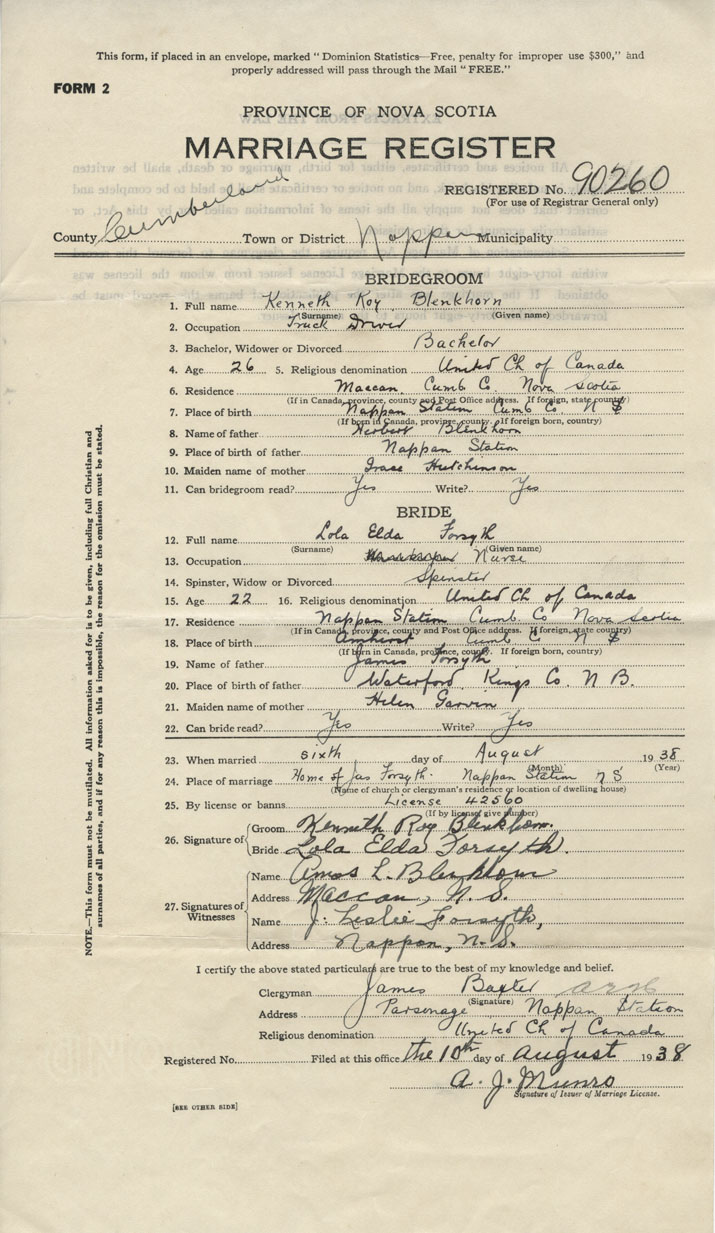 This form, if placed in an envelope, marked "Dominion Statistics—Free, penalty for improper use $300," and
properly addressed will pass through the Mail "FREE."
FORM 2
PROVINCE OF NOVA SCOTIA
MARRIAGE REGISTER
REGISTERED No. 90260
(For use of Registrar General only)
County Cumberland Town or District Nappan Municipality
BRIDEGROOM
1. Full name Kenneth Roy Blenkhorn
(Surname) (Given name)
2. Occupation Truck Driver
3. Bachelor, Widower or Divorced Bachelor
4. Age 26 5. Religious denomination United Ch of Canada
6. Residence Maccan Cumb Co. Nova Scotia
(If in Canada, province, county and Post Office address. If foreign, state country)
7. Place of birth Nappan Station Cumb Co. N S
(If born in Canada, province, county. If foreign born, country)
8. Name of father Herbert Blenkhorn
9. Place of birth of father Nappan Station
10. Maiden name of mother Grace Hutchinson
11. Can bridegroom read? Yes Write? Yes
BRIDE
12. Full name Lola Elda Forsyth
(Surname) (Given name)
13. Occupation Nurse
14. Spinster, Widow or Divorced Spinster
15. Age 22 16. Religious denomination United Ch of Canada
17. Residence Nappan Station Cumb Co Nova Scotia
(If in Canada, province, county and Post Office address. If foreign, state country)
18. Place of birth Amherst Cumb C N S
(If born in Canada, province, county. If foreign born, country)
19. Name of father James Forsyth
20. Place of birth of father Waterford Kings Co. N B.
21. Maiden name of mother Helen Garvin
22. Can bride read? Yes Write? Yes
23. When married sixth day of August 1938
(Month) (Year)
24. Place of marriage Home of Jas Forsyth. Nappan Station N S
(Name of church or clergyman's residence or location of dwelling house)
25. By license or banns License 42560
(If by license, give number)
26. Signature of
Groom Kenneth Roy Blenkhorn.
Bride Lola Elda Forsyth.
27. Signatures of Witnesses
Name Amos L. Blenkhorn
Address Maccan, N. S.
Name J. Leslie Forsyth,
Address Nappan, N.S.
I certify the above stated particulars are true to the best of my knowledge and belief.
Clergyman James Baxter
(Signature)
Address Parsonage Nappan Station
Religious denomination United Ch of Canada
Registered No. Filed at this office the 10th day of August 1938
A. J. Munro
Signature of Issuer of Marriage License.
[SEE OTHER SIDE]
NOTE.—This form must not be mutilated. All information asked for is to be given, including full Christian and
surnames of all parties, and if for any reason this is impossible, the reason for the omission must be stated.